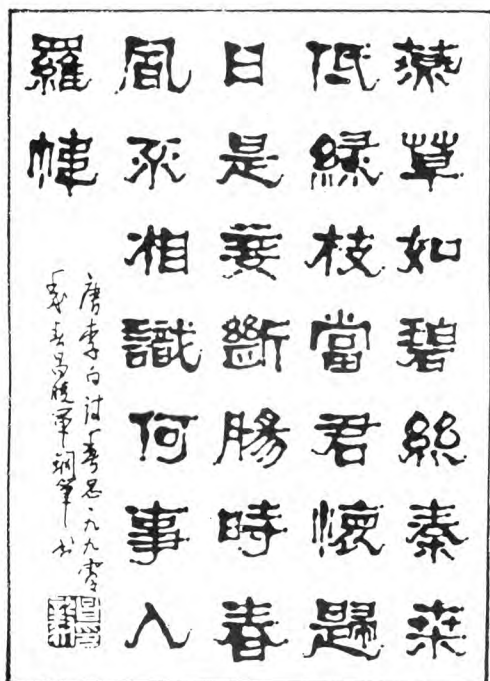 燕草如碧絲秦桒
低緑枝當君懷歸
日是妾斷腸時春
風不相識何事入
羅幃
唐李白诗春思一九九零
昌晓軍鋼筆书